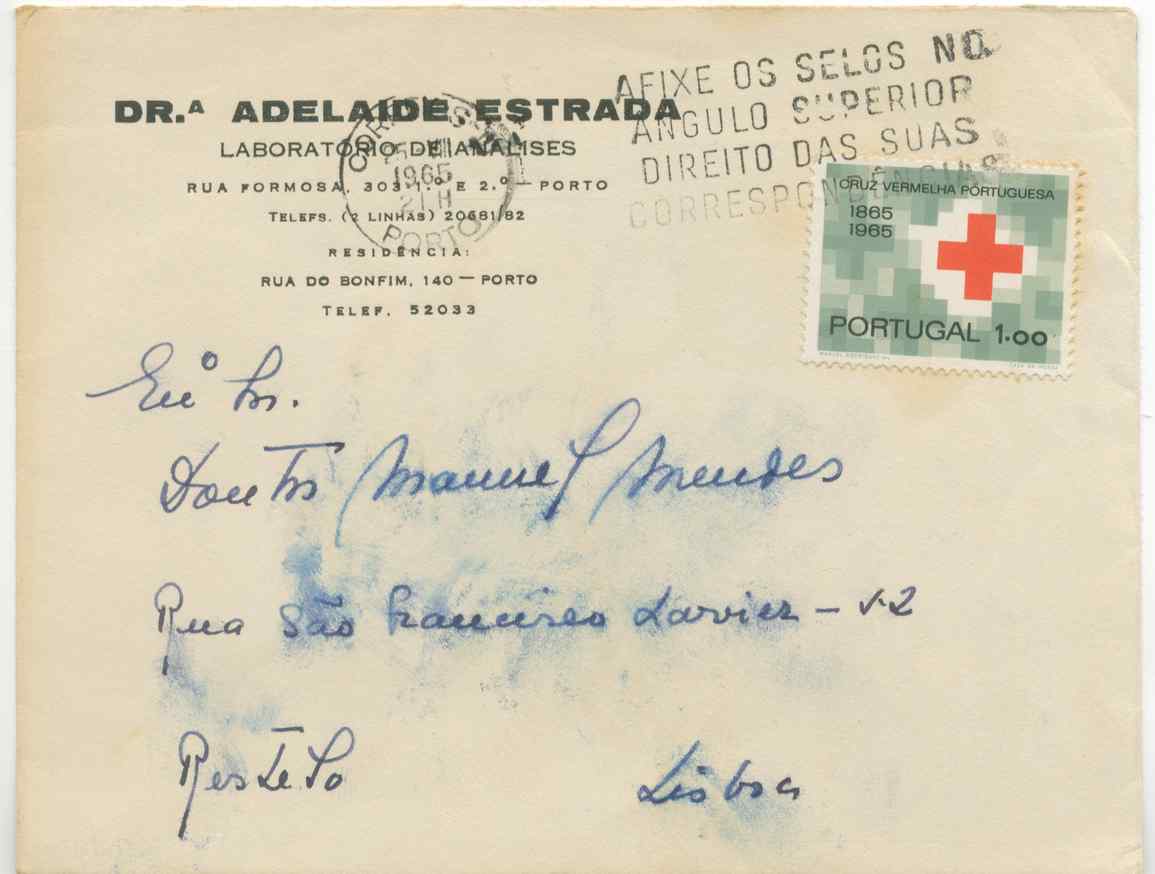 DR.ª ADELAIDE ESTRADA
LABORATÓRIO DE ANÁLISES
RUA FORMOSA, 303-1.º E 2.º — PORTO
TELEFS. (2 LINHAS) 20681/82
RESIDÊNCIA:
RUA DO BONFIM, 140 — PORTO
TELEF. 52033
1965
21 H
PORTO
AFIXE OS SELOS NO
ANGULO SUPERIOR
DIREITO DAS SUAS
CORRESPONDÊNCIAS
CRUZ VERMELHA PORTUGUESA
1865
1965
PORTUGAL 1.00
Sr.
Doutor Manuel Mendes
Rua São Francisco Xavier -
Restelo
Lisboa